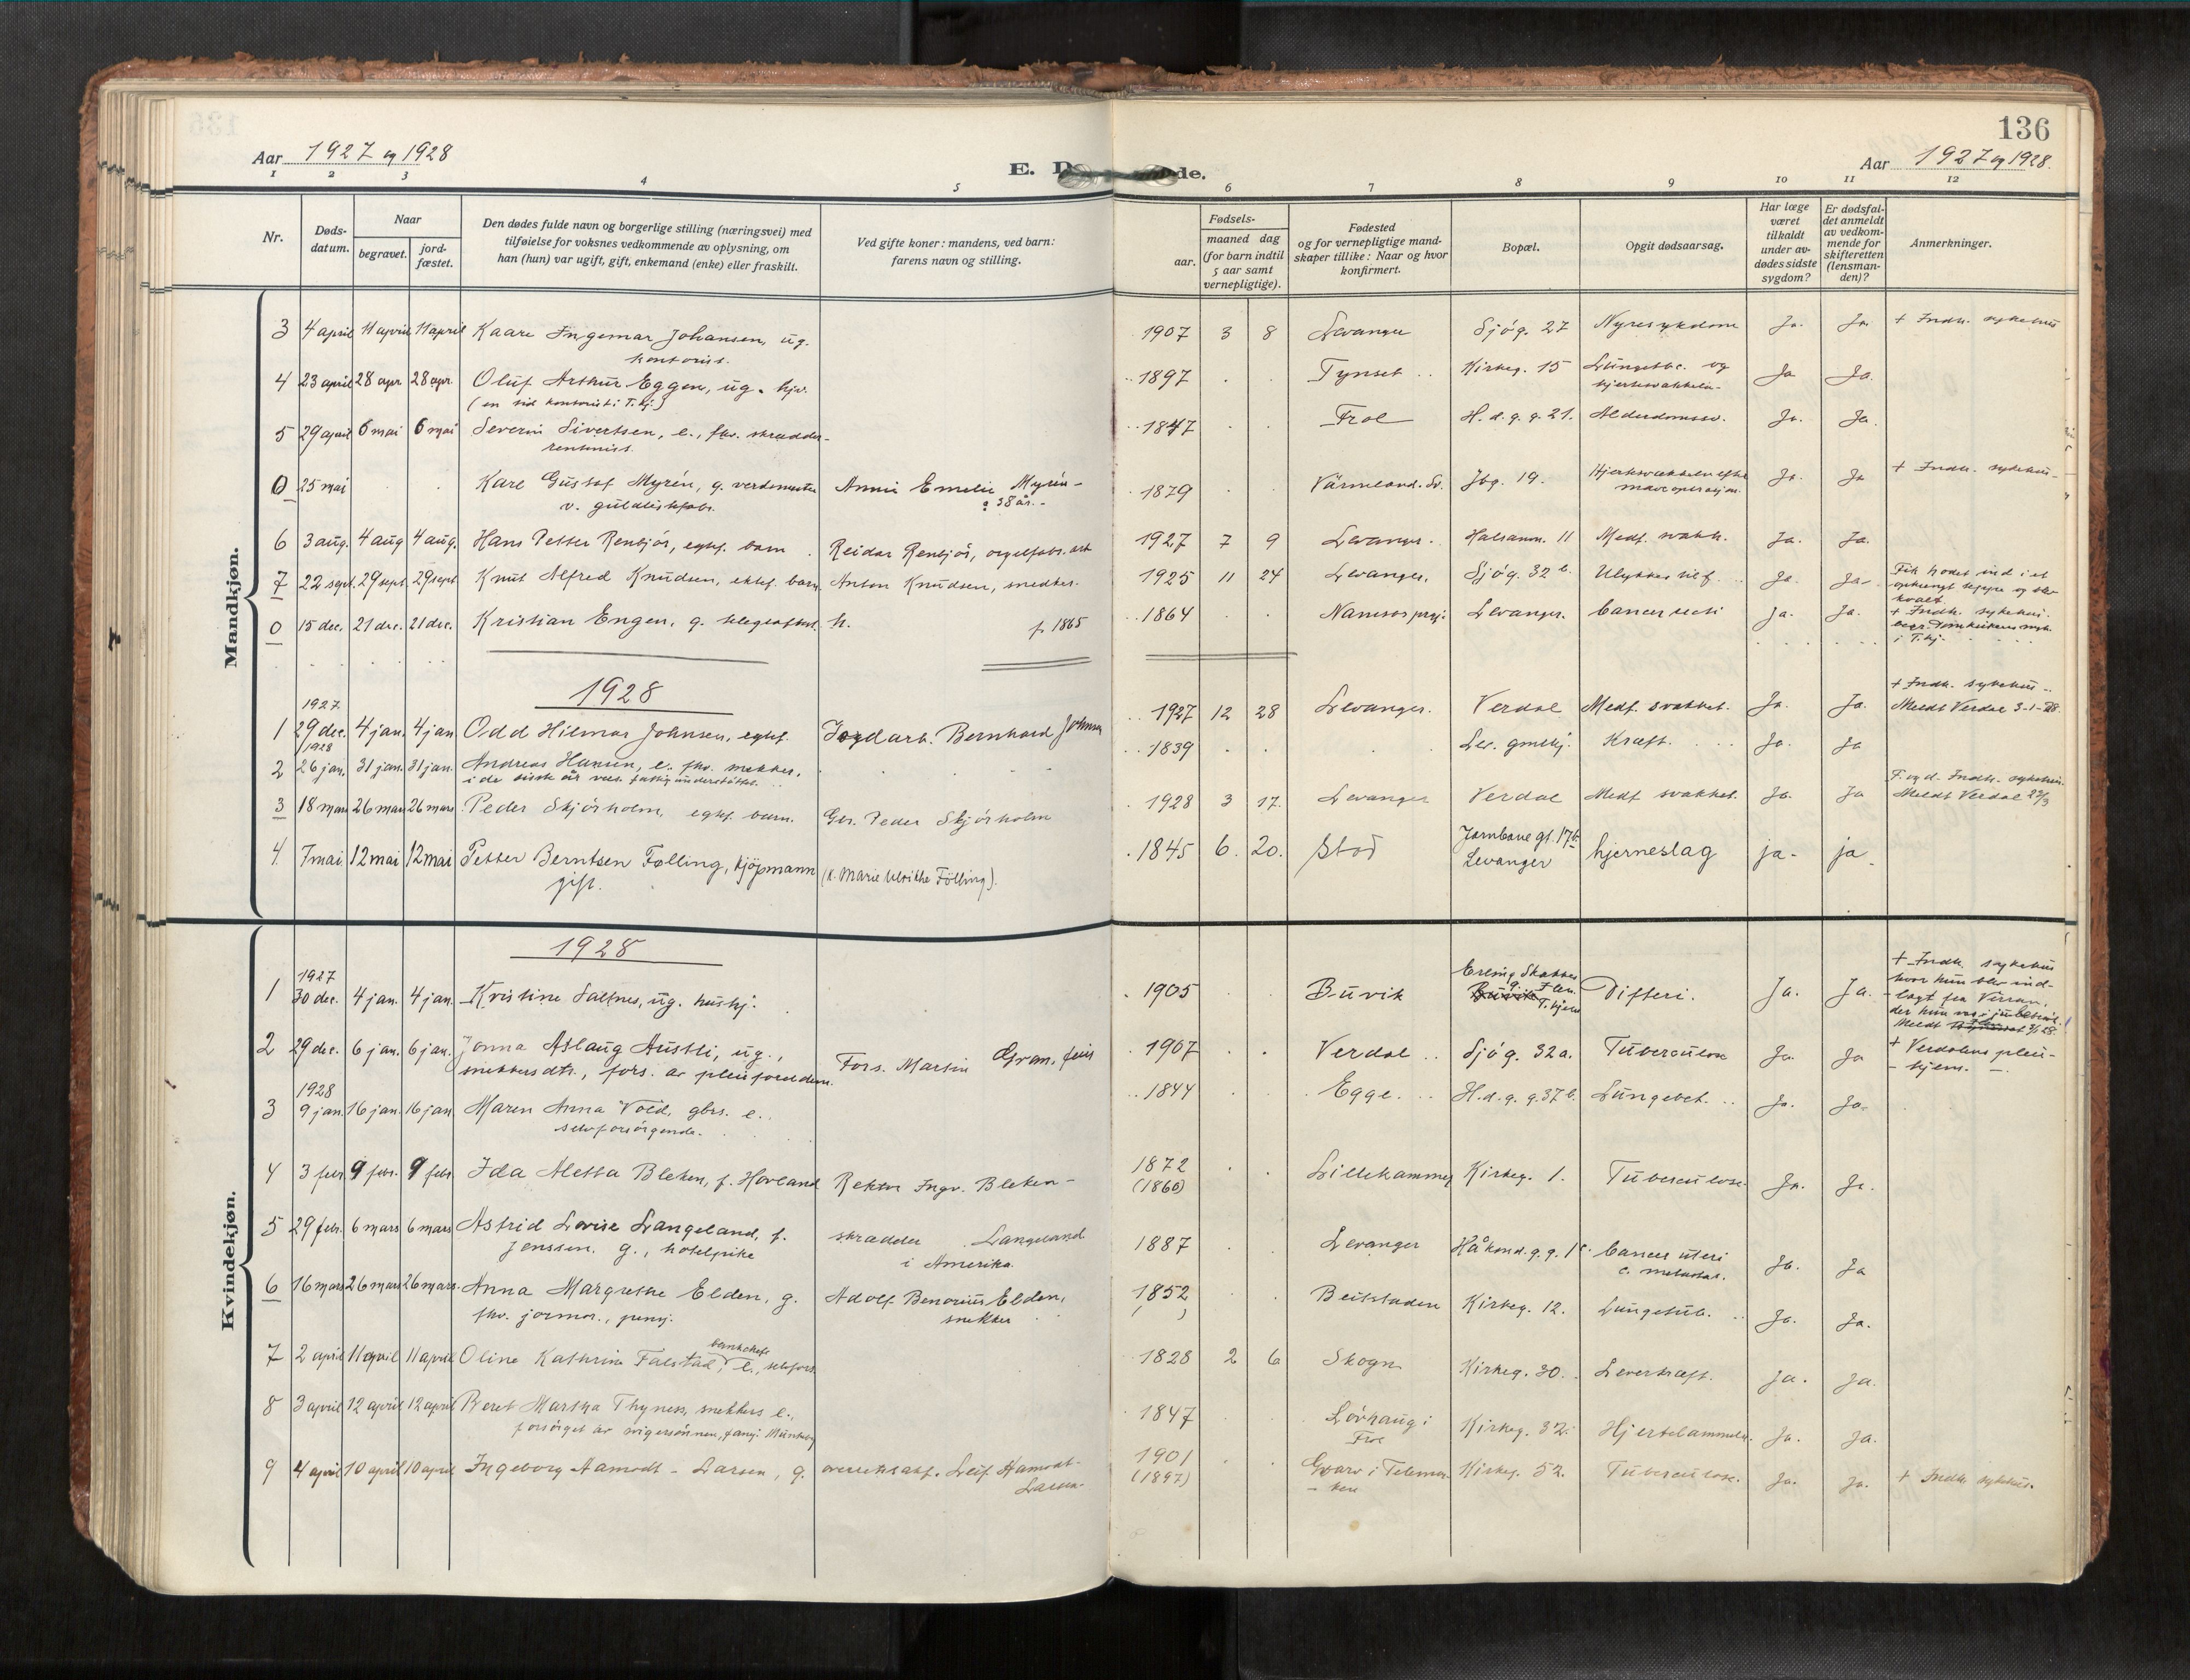 136
Aar 1927 og 1928
E. D de.
Aar 1927 og 1928.
1 2 3 4 5 6 7 8 9 10 11 12
Nr.
Døds-
datum.
Naar
begravet.
jord-
fæstet.
Den dødes fulde navn og borgerlige stilling (næringsvei) med
tilføielse for voksnes vedkommende av oplysning, om
han (hun) var ugift, gift, enkemand (enke) eller fraskilt.
Ved gifte koner: mandens, ved barn:
farens navn og stilling.
Fødsels-
aar.
maaned dag
(for barn indtil
5 aar samt
vernepligtige).
Fødested
og for vernepligtige mand-
skaper tillike: Naar og hvor
konfirmert.
Bopæl.
Opgit dødsaarsag.
Har læge
været
tilkaldt
under av-
dødes sidste
sygdom?
Er dødsfal-
det anmeldt
av vedkom-
mende for
skifteretten
(lensman-
den)?
Anmerkninger.
Mandkjøn.
3 4 april 11 april 11 april Kaare Ingemar Johansen, ug. 1907 3 8 Levanger Sjøg. 27 Nyresykdom Ja. Ja. + Indh. sykehus
kontorist.
4 23 april 28 apr 28 apr. Oluf Arthur Eggen, ug. hjv. 1897 Tynset Kirkeg. 15 Lungetbc. og Ja Ja.
(en tid kontorist i T.hj.)
5 29 april 6 mai 6 mai Severin Sivertsen, e., fhv. skrædder- 1847 Frol H. d. g. g. 21. Alderdomssv. Ja. Ja.
rentenist.
0 25 mai Karl Gustaf Myrén, g. verdemester Annie Emelie Myrén- 1879 Värmeland. Sv. Jbg. 19. Hjertesvækkelse efter Ja. Ja + Indh. sykehus-
v. guldlistfabr. 38 år.- maveoperasjon.
6 3 aug. 4 aug 4 aug. Hans Petter Renbjør, egtef. barn Reidar Renbjør, orgelfabr. arb 1927 7 9 Levanger. Halsanv. 11 Medf. svakh. Ja. Ja.
7 22 sept. 29 sept. 29 sept Knut Alfred Knudsen, ektef. barn Anton Knudsen, snedker. 1925 11 24 Levanger. Sjøg. 32 b. Ulykkestilf. Ja. Ja- Fik hodet ind i et
kvalt
0 15 dec. 21 dec. 21 dec. Kristian Engen, g. h. f. 1865 1864 Namsos Levanger. Cancer recti Ja. Ja. + Indh. sykehus.
i T.hj.
1928
1927
1 29 dec. 4 jan. 4 jan Odd Hilmar Johnsen, egtef. Jordarb. Bernhard Johnsen 1927 12 28 Levanger. Verdal Medf. svakhet. Ja. Ja. + Indh. sykehus -
Meldt Verdal 3-1-28.
1928
2 26 jan. 31 jan. 31 jan. Andreas Hansen, e. fhv. snekker, 1839 Lev. gmlhj. Kræft. Ja. Ja
i de siste år væs. fattigunderstøttet.
3 18 mars 26 mars 26 mars Peder Skjørholm, egtef. barn. Gbr. Peder Skjørholm 1928 3 17. Levanger Verdal Medf. svakhet. Ja. Ja F. og d. Indh. sykehus.
Meldt Verdal 22/3
4. 7 mai 12 mai 12 mai Petter Berntsen Følling, kjøpmann (k. Marie Ulrikke Følling). 1845 6. 20. Stod Jarnbane gt. 17 b. Levanger hjerneslag ja- ja.
gift.
Kvindekjøn.
1928
1927
1 30 dec. 4 jan. 4 jan. Kristine Saltnes, ug. hushj. 1905 Buvik Erling Skakkes Difteri. Ja. Ja. + Indh. sykehus
g. T.hjem hvor hun blev ind-
lagt fra Verran,
2 29 dec. 6 jan. 6 jan. Jonna Aslaug Austli, ug., Fors. Martin Gran, 1907 Verdal Sjøg. 32a. Tuberculose Ja. Ja + Verdalens pleie-
snekkersdtr., fors. av pleieforeldrene. - hjem. -
1928
3 9 jan. 16 jan. 16 jan Maren Anna Vold, gbrs. e. 1844 Egge. H. d. g. g. 37 b. Lungebet. Ja. Ja.
selvforsørgende.
4 3 febr 9 febr. 9 febr Ida Aletta Bleken, f. Hovland Rektor Ingv. Bleken- 1872 Lillehammer Kirkeg. 1. Tuberculose. Ja. Ja.
(1866)
5 29 febr. 6 mars 6 mars Astrid Lovise Langeland, f. skrædder Langeland 1887 Levanger Håkon d. g. g. 1 c. Cancer uteri Ja. Ja
Jenssen. g., hotelpike i Amerika. c. metastas.
6 16 mars 26 mars 26 mars. Anna Margrethe Elden, g. Adolf Benonius Elden, 1852 Beitstaden Kirkeg. 12. Lungetub. Ja. Ja.
fhv. jormor., pensj. snekker
7 2 april 11 april 11 april Oline Kathrine Falstad, bankchefs e., selvfors. 1828 2 6 Skogn Kirkeg. 30. Leverkræft. Ja. Ja.
8 3 april 12 april 12 april Beret Martha Thynes, snekkers e., 1847 Løvhaug i Kirkeg. 32. Hjertelammelse. Ja. Ja.
forsørget av svigersønnen, Frol
9 4 april 10 april 10 april Ingeborg Aamodt - Larsen, g. overrettssakf. Leif Aamodt- 1901 Gvarv i Telemar- Kirkeg. 52. Tuberculose. Ja. Ja. + Indh. sykehus.
Larsen. (1897) - ken